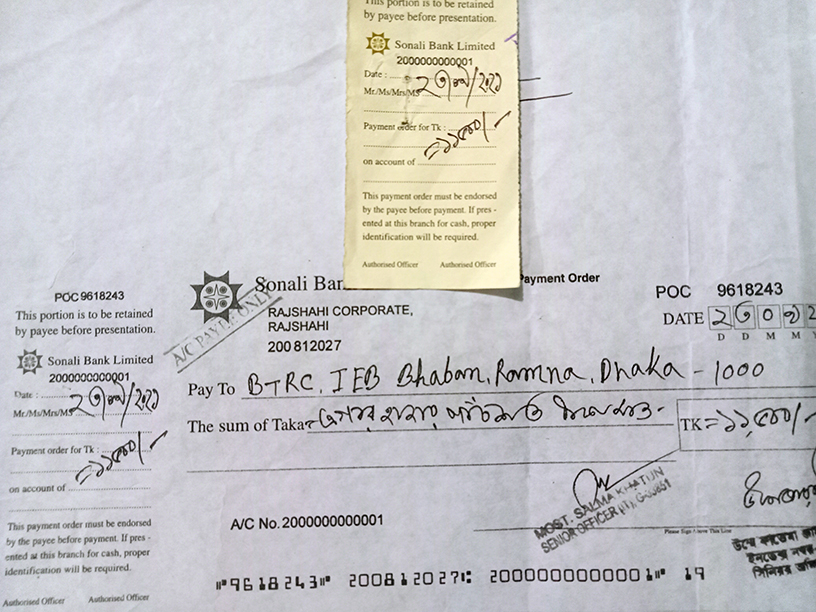 This portion is to be retained
by payee before presentation.
Sonali Bank Limited
2000000000001
Date : ২৩/০৮/২০২১
Mr./Ms/Mrs/MS
Payment order for Tk :
=১১,৫০০/-
on account of
This payment order must be endorsed
by the payee before payment. If pres -
ented at this branch for cash, proper
identification will be required.
Authorised Officer Authorised Officer
POC 9618243
This portion is to be retained
by payee before presentation.
Sonali Bank Limited
2000000000001
Date :
Mr./Ms/Mrs/MS
Payment order for Tk :
=১১,৫০০/-
on account of
This payment order must be endorsed
by the payee before payment. If pres -
ented at this branch for cash, proper
identification will be required.
Authorised Officer Authorised Officer
Sonali Ban
Payment Order
A/C PAYEE ONLY
RAJSHAHI CORPORATE,
RAJSHAHI
200812027
POC 9618243
DATE ২৩০৮২
D D M M Y
Pay To BTRC, IEB Bhaban, Ramna, Dhaka - 1000
The sum of Taka হাজার
TK =১১,৫০০/-
MOST. SALMA KHATUN
SENIOR OFFICER
A/C No. 2000000000001
Please Sign Above This Line
⑈9618243⑈ 200812027⑆ 2000000000001⑈ 19